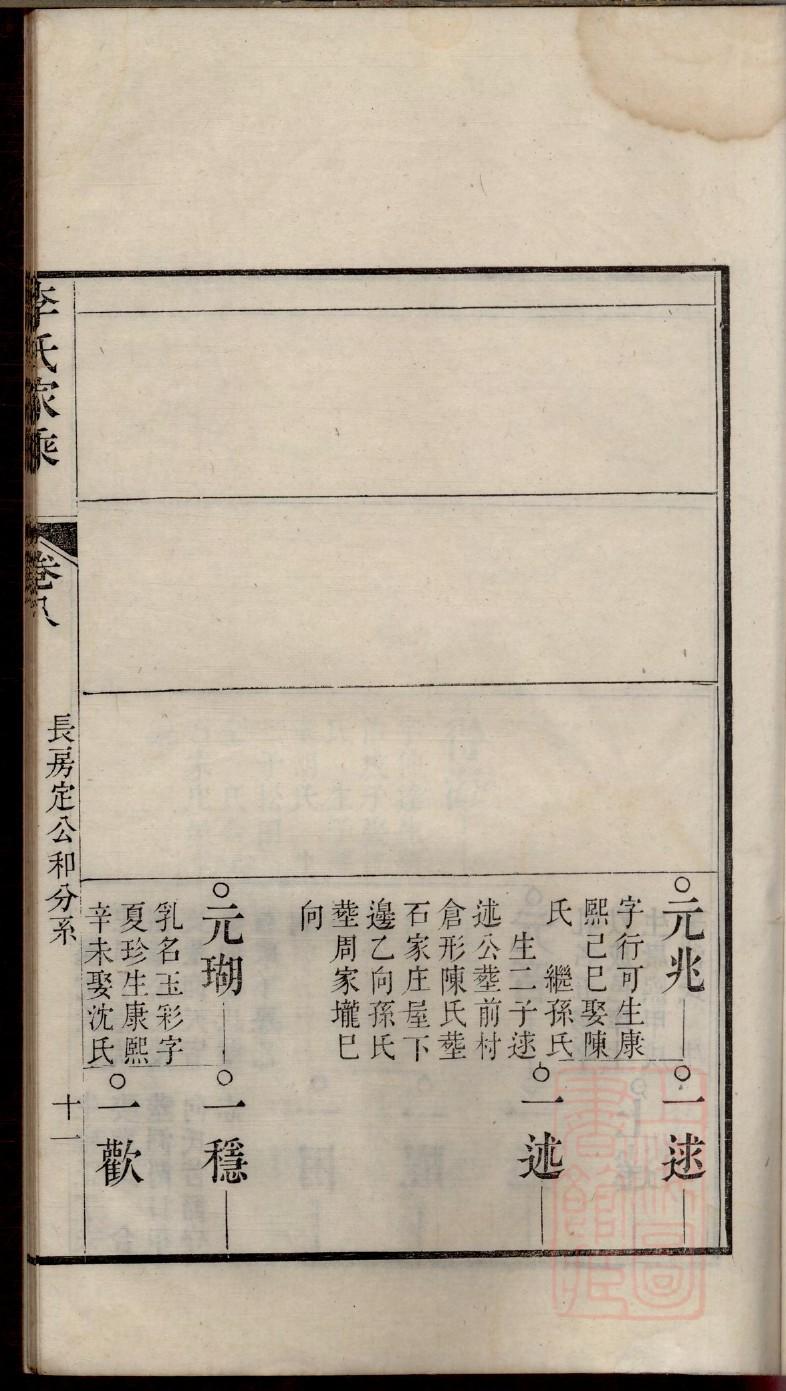 元兆
字行可生康
熙己巳娶陳
氏　繼孫氏
生二子逑
述公塟前村
倉形陳氏塟
石家庄屋下
邊乙向孫氏
塟周家壠巳
向
一逑
一述
元瑚
乳名玉彩字
夏珍生康熙
辛未娶沈氏
一穩
一歡
李氏家乘
卷八
長房定公和分系
十一